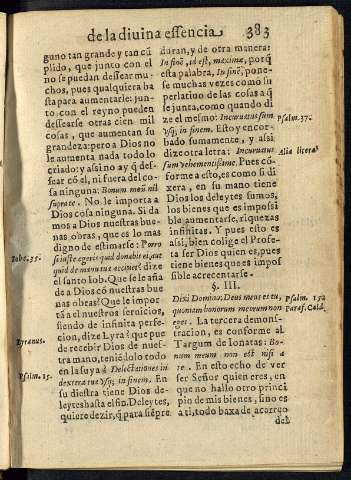 de la diuina essencia 383
guno tan grande y tan cũ
plido, que junto con el
no se puedan dessear mu-
chos, pues qualquiera ba
sta para aumentarle: jun-
to con el reyno pueden
dessearse otras cien mil
cosas, que aumentan su
grandeza: pero a Dios no
le aumenta nada todo lo
criado: y assi no ay q̃ des-
sear cõ el, ni fuera del co-
sa ninguna: Bonum meũ nil
suprate. No le importa a
Dios cosa ninguna. Si da
mos a Dios nuestras bue-
nas obras, que es lo mas
digno de estimarse: Porro
si iuste egeris quid donabis ei, aut
quid de manu tua accipiet? dize
el santo Iob. Que se le aña
de a Dios cõ nuestras bue
nas obras? Que le impor-
tã a el nuestros seruicios,
siendo de infinita perfe-
cion, dize Lyra? que pue
de recebir Dios de nues-
tra mano, teniẽdolo todo
en la suya? Delectationes in
dextera tua vsq; in finem. En
su diestra tiene Dios de-
leytes hasta el fin. Deleytes,
quiere dezir, q̃ para siẽpre
Iobc. 35.
Psalm. 15.
duran, y de otra manera:
In finẽ, id est, maximæ, porq̃
esta palabra, In finẽ, pone-
se muchas vezes como su
perlatiuo de las cosas a q̃
se junta, como quando di
ze el mesmo: Incuruatus sum
vsq; in finem. Estoy encor-
bado sumamente, y assi
dize otra letra: Incuruatus
sum vehementissime. Pues cõ
forme a esto, es como si di
xera, en su mano tiene
Dios los deleytes sumos,
los bienes que es impossi
ble aumentarse, riquezas
infinitas. Y pues esto es
assi, bien colige el Profe-
ta ser Dios quien es, pues
tiene bienes que es impof
sible acrecentarse.
Psalm. 37.
Alia litera
§. III.
Dixi Domino: Deus meus es tu,
quoniam bonorum meorum non
eges. La tercera demonst-
tracion, es conforme al
Targum de Ionatas: Bo-
num meum non est nisi a
te. En esto echo de ver
ser Señor quien eres, en
que no hallo otro princi
pio de mis bienes, sino es
a ti, todo baxa de acarreo
del
Psalm. 15
Paraf. Cald.